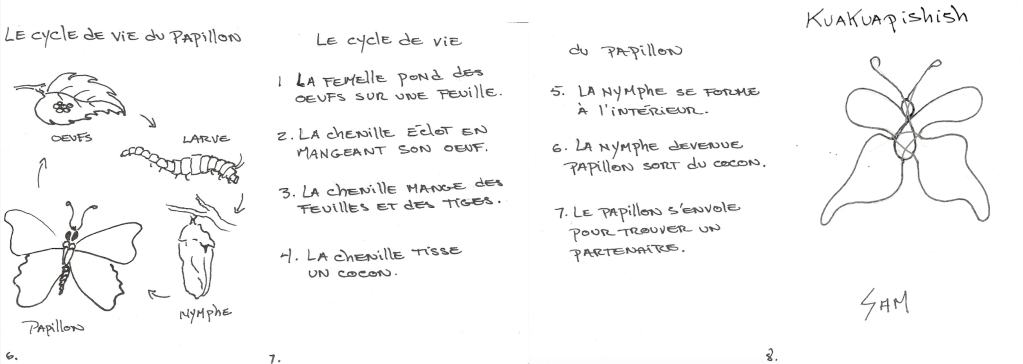 Le cycle de vie du Papillon
OEUFS
LARVE
NYMPHE
Papillon
6.
Le cycle de vie
1 La femelle pond des
oeufs sur une feuille.
2. La chenille éclot en
mangeant son oeuf.
3. La chenille mange des
feuilles et des tiges.
4. La chenille tisse
un cocon.
7.
du Papillon
5. La nymphe se forme
à l'intérieur.
6. La nymphe devenue
papillon sort du cocon.
7. Le papillon s'envole
pour trouver un
partenaire.
Kuakuapishish
SAM
8.